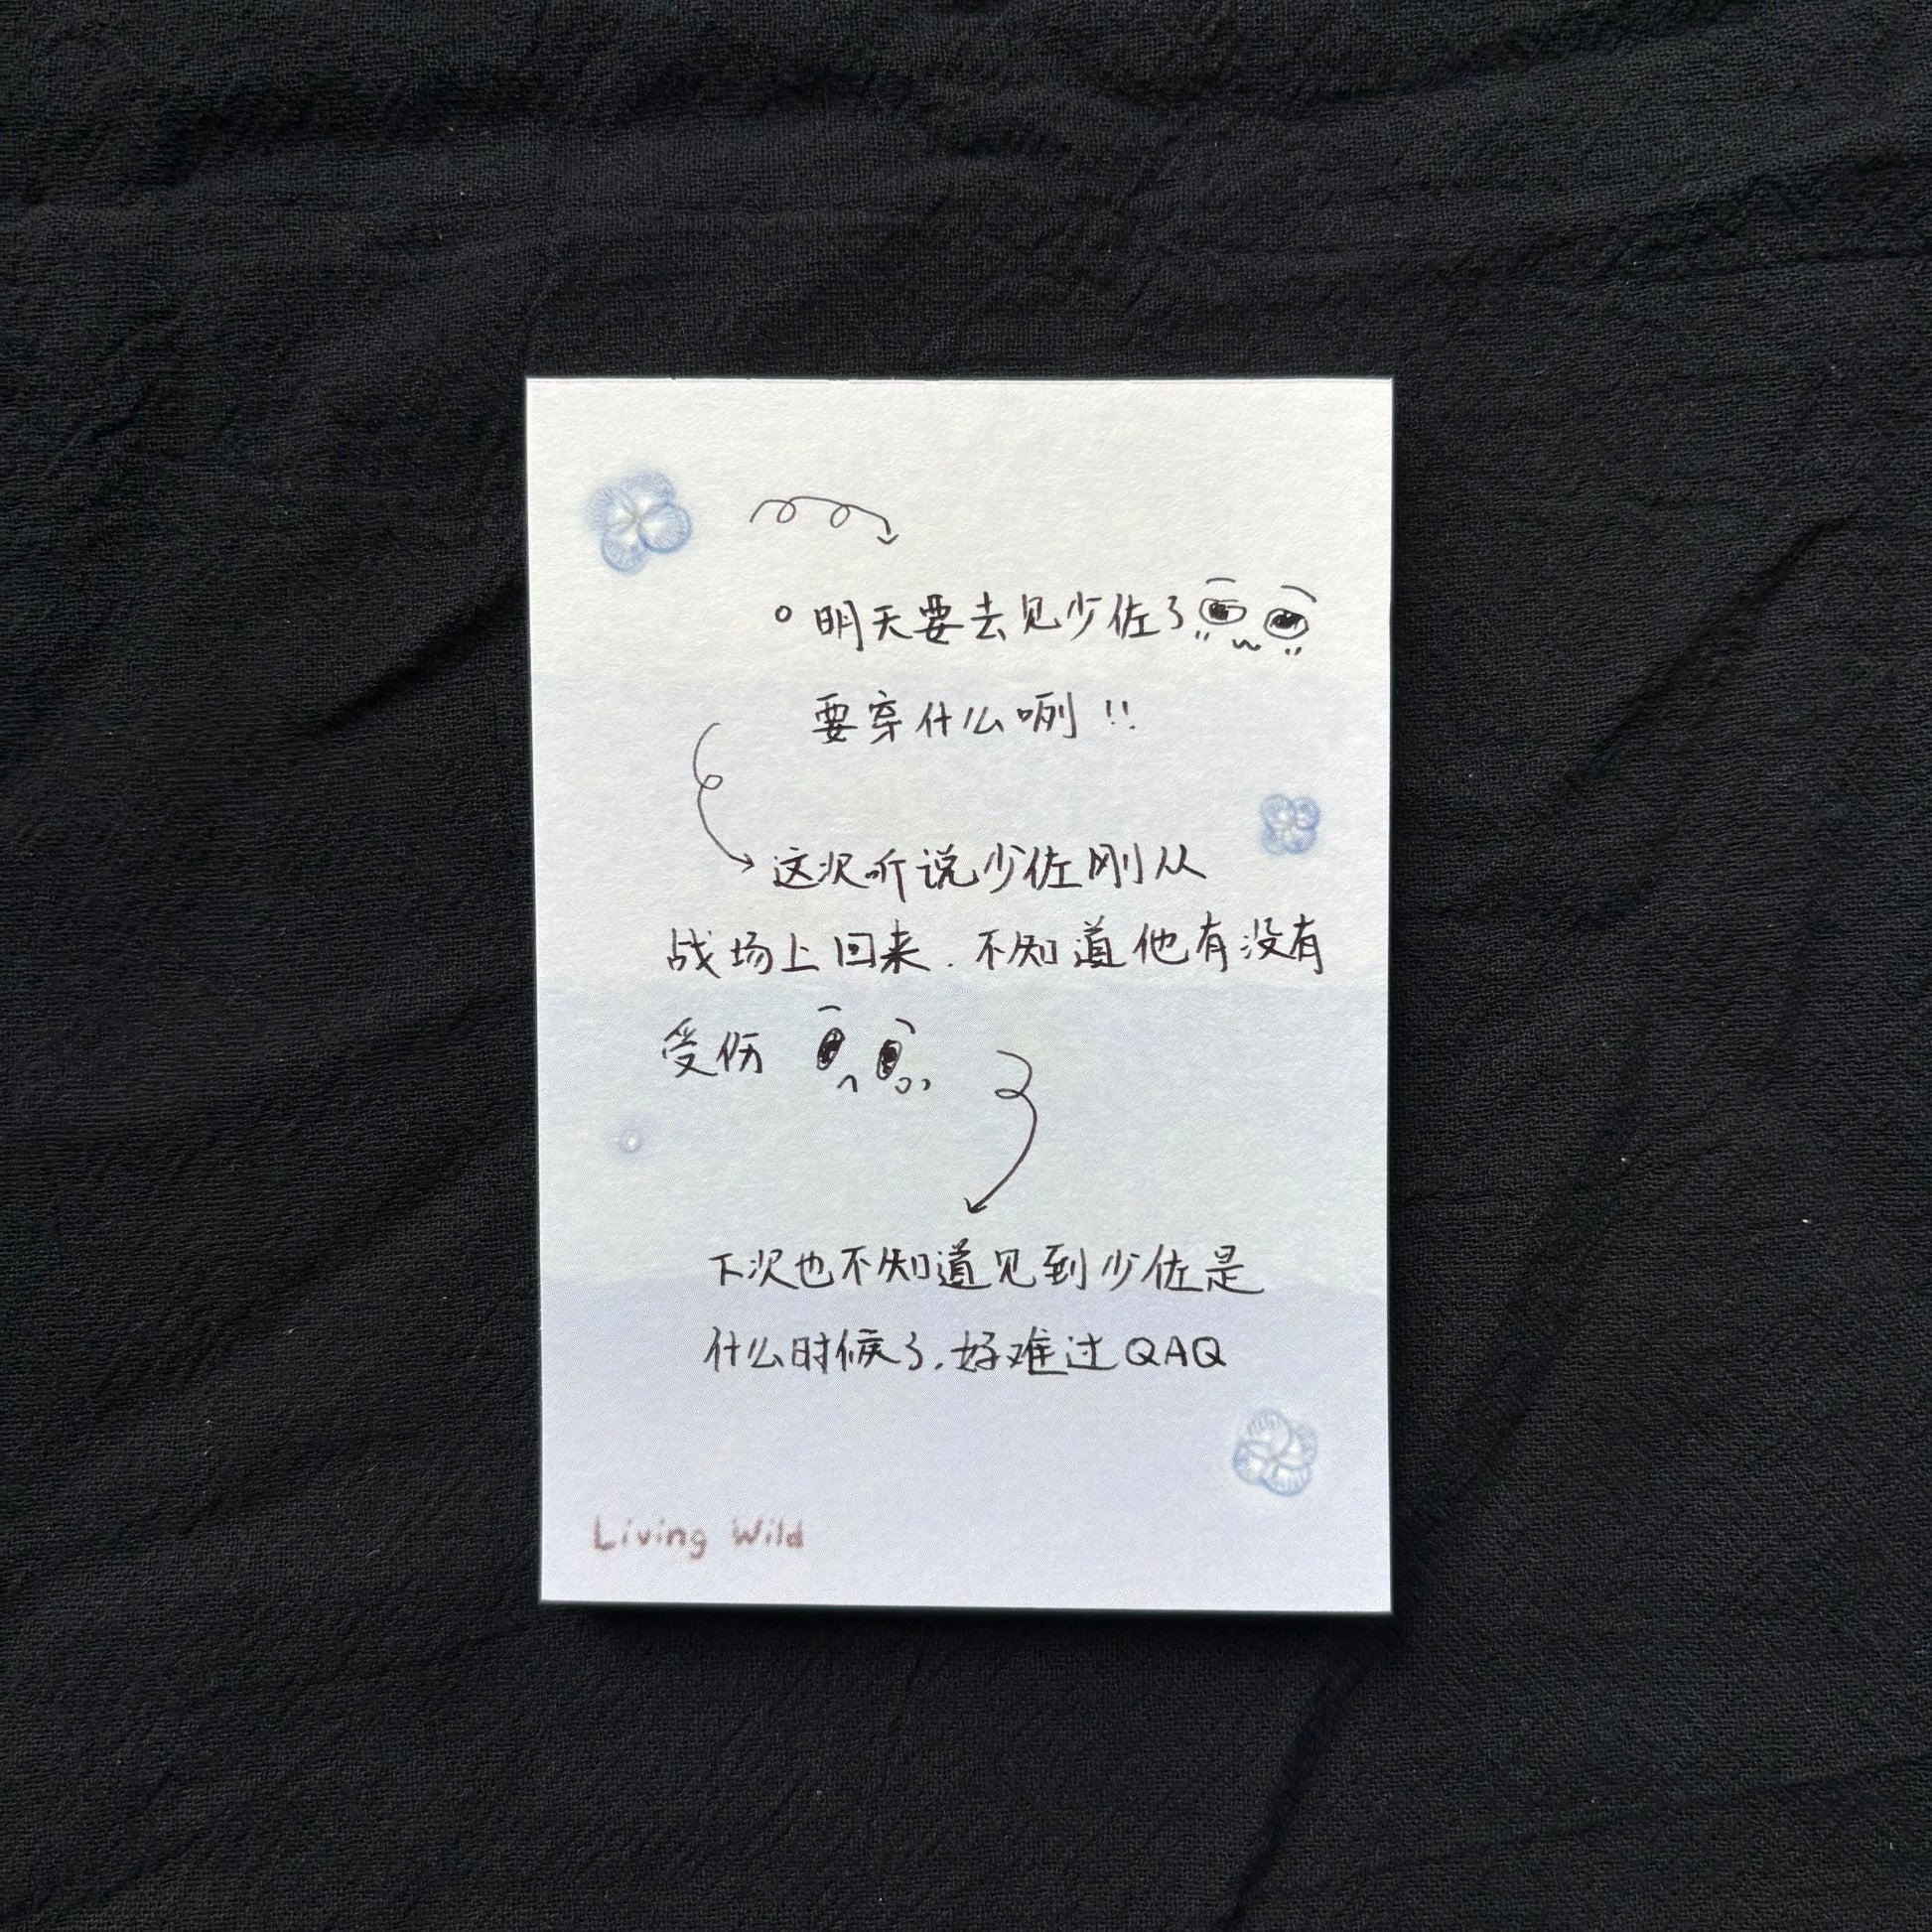 明天要去见少佐了
要穿什么咧!!
这次听说少佐刚从
战场上回来.不知道他有没有
受伤
下次也不知道见到少佐是
什么时候了.好难过QAQ
Living Wild